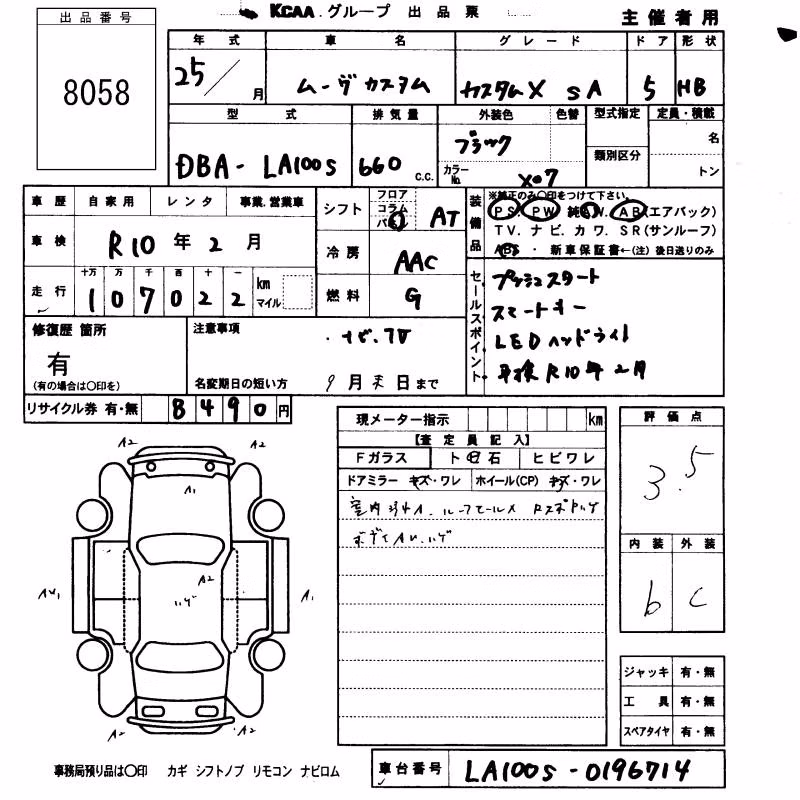 KCAA グループ 出品票 主催者用
出品番号
8058
年式 車名 グレード ドア 形状
25/ 月 ムーヴカスタム カスタムX SA 5 HB
型式 排気量 外装色 色替 型式指定 定員・積載
DBA-LA100S 660 c.c. ブラック 名
類別区分
カラーNo. X07 トン
車歴 自家用 レンタ 事業.営業車
シフト フロア コラム AT
車検 R10年2月
冷房 AAC
走行 十万 万 千 百 十 一 km マイル
107022
燃料 G
装備品 ※純正のみ〇印をつけて下さい。
PS. PW 純AW. AB(エアバック)
TV. ナビ. カワ. SR(サンルーフ)
ABS ・ 新車保証書←(注)後日送りのみ
セールスポイント
プッシュスタート
スマートキー
LEDヘッドライト
車検R10年2月
修復歴 箇所 注意事項
有 ナビ.TV
(有の場合は〇印を) 名変期日の短い方 9月末日まで
リサイクル券 有・無 8490円
現メーター指示 km
【査定員記入】
Fガラス ト 石 ヒビワレ
ドアミラー キズ・ワレ ホイール(CP) キズ・ワレ
評価点
3.5
内装 外装
b c
A2 A2
A1
A2
A1
A2 A2
ジャッキ 有・無
工具 有・無
スペアタイヤ 有・無
事務局預り品は〇印 カギ シフトノブ リモコン ナビロム
車台番号 LA100S-0196714